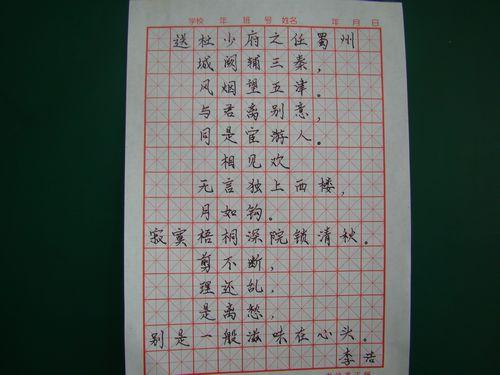 学校 年 班 号 姓名 年 月 日
送杜少府之任蜀州
城阙辅三秦，
风烟望五津。
与君离别意，
同是宦游人。
相见欢
无言独上西楼，
月如钩。
寂寞梧桐深院锁清秋。
剪不断，
理还乱，
是离愁，
别是一般滋味在心头。
李浩